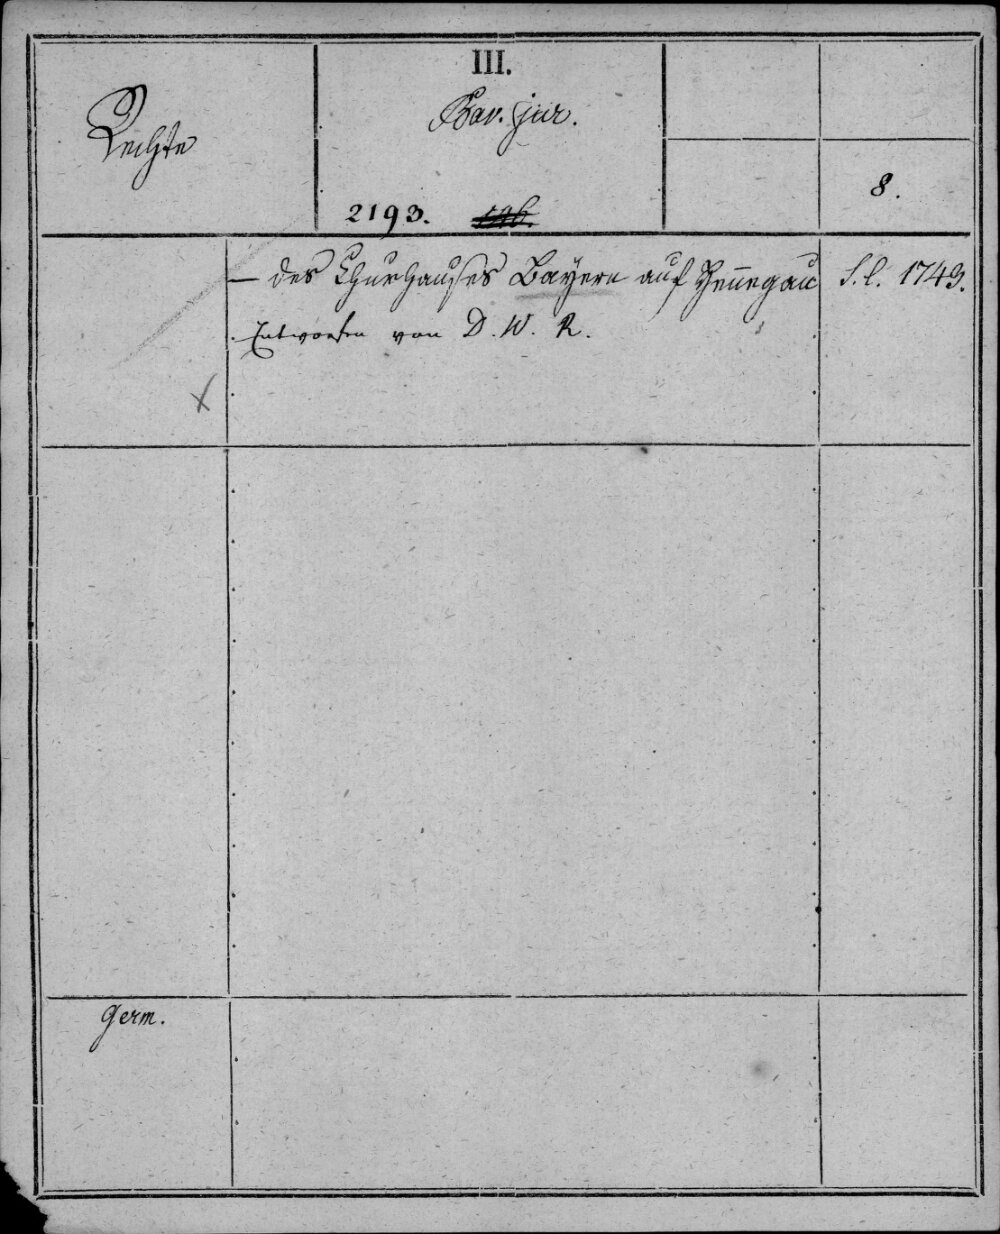 III.
Bav. jur.
Rechte
8.
2193. 196.
— des Churhauses Bayern auf Hennegau S. l. 1743.
Entworfen von D. W. R.
Germ.